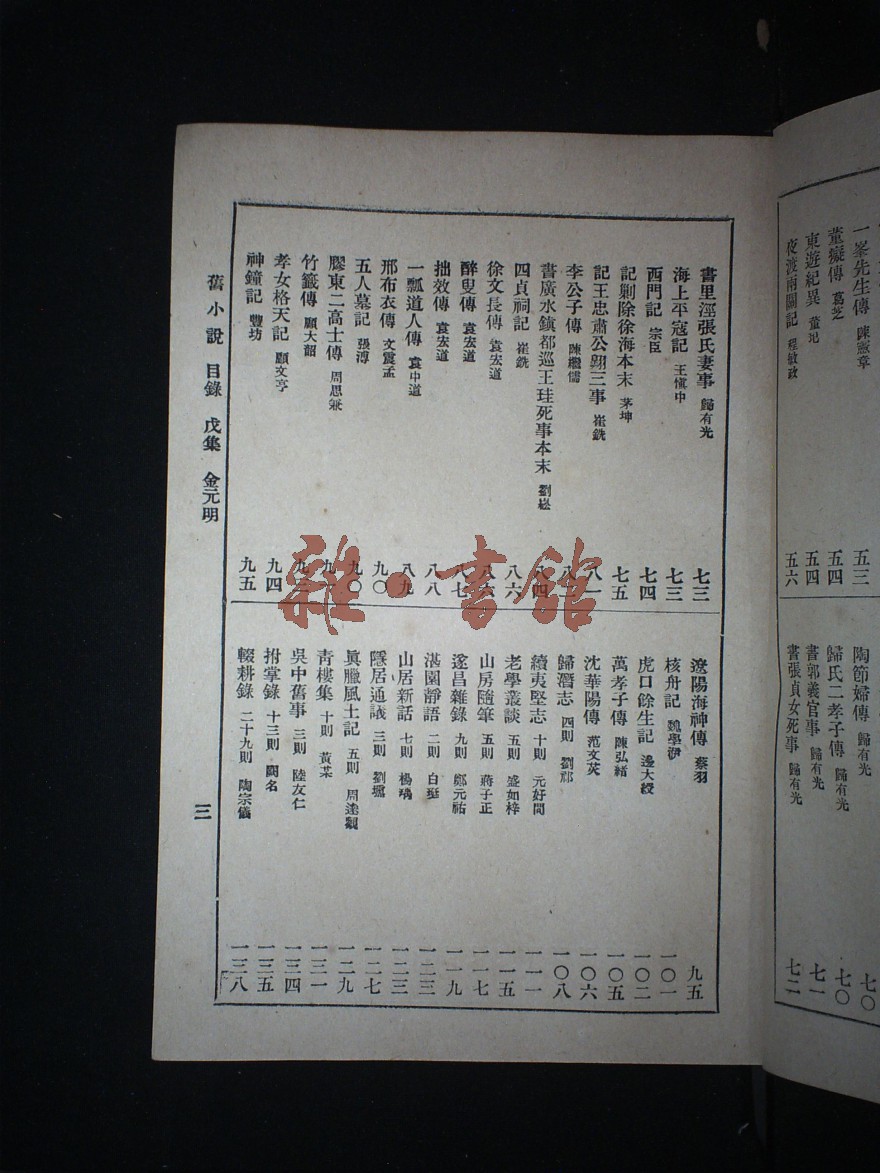 一峯先生傳 陳憲章 五三
董癡傳 葛芝 五四
東遊紀異 董玘 五四
夜渡兩關記 程敏政 五六
陶節婦傳 歸有光 七〇
歸氏二孝子傳 歸有光 七〇
書郭義官事 歸有光 七一
書張貞女死事 歸有光 七二
書里涇張氏妻事 歸有光 七三
海上平寇記 王愼中 七三
西門記 宗臣 七四
記剿除徐海本末 茅坤 七五
記王忠肅公翺三事 崔銑 八一
李公子傳 陳繼儒
書廣水鎭都巡王珪死事本末 劉崧 八四
四貞祠記 崔銑 八六
徐文長傳 袁宏道 八六
醉叟傳 袁宏道 八七
拙效傳 袁宏道 八八
一瓢道人傳 袁中道 八九
邢布衣傳 文震孟 九〇
五人墓記 張溥 九〇
膠東二高士傳 周思兼
竹籤傳 顧大韶
孝女格天記 顧文亨 九四
神鐘記 豐坊 九五
遼陽海神傳 蔡羽 九五
核舟記 魏學洢 一〇一
虎口餘生記 邊大綬 一〇二
萬孝子傳 陳弘緒 一〇五
沈華陽傳 范文英 一〇六
歸潛志 四則 劉祁 一〇八
續夷堅志 十則 元好問 一一一
老學叢談 五則 盛如梓 一一五
山房隨筆 五則 蔣子正 一一七
遂昌雜錄 九則 鄭元祐 一一九
湛園靜語 二則 白珽 一二三
山居新話 七則 楊瑀 一二三
隱居通議 三則 劉壎 一二七
眞臘風土記 五則 周達觀 一二九
靑樓集 十則 黃某 一三一
吳中舊事 三則 陸友仁 一三四
拊掌錄 十三則 闕名 一三五
輟耕錄 二十九則 陶宗儀 一三八
舊小說 目錄 戊集 金元明 三
雜·書館